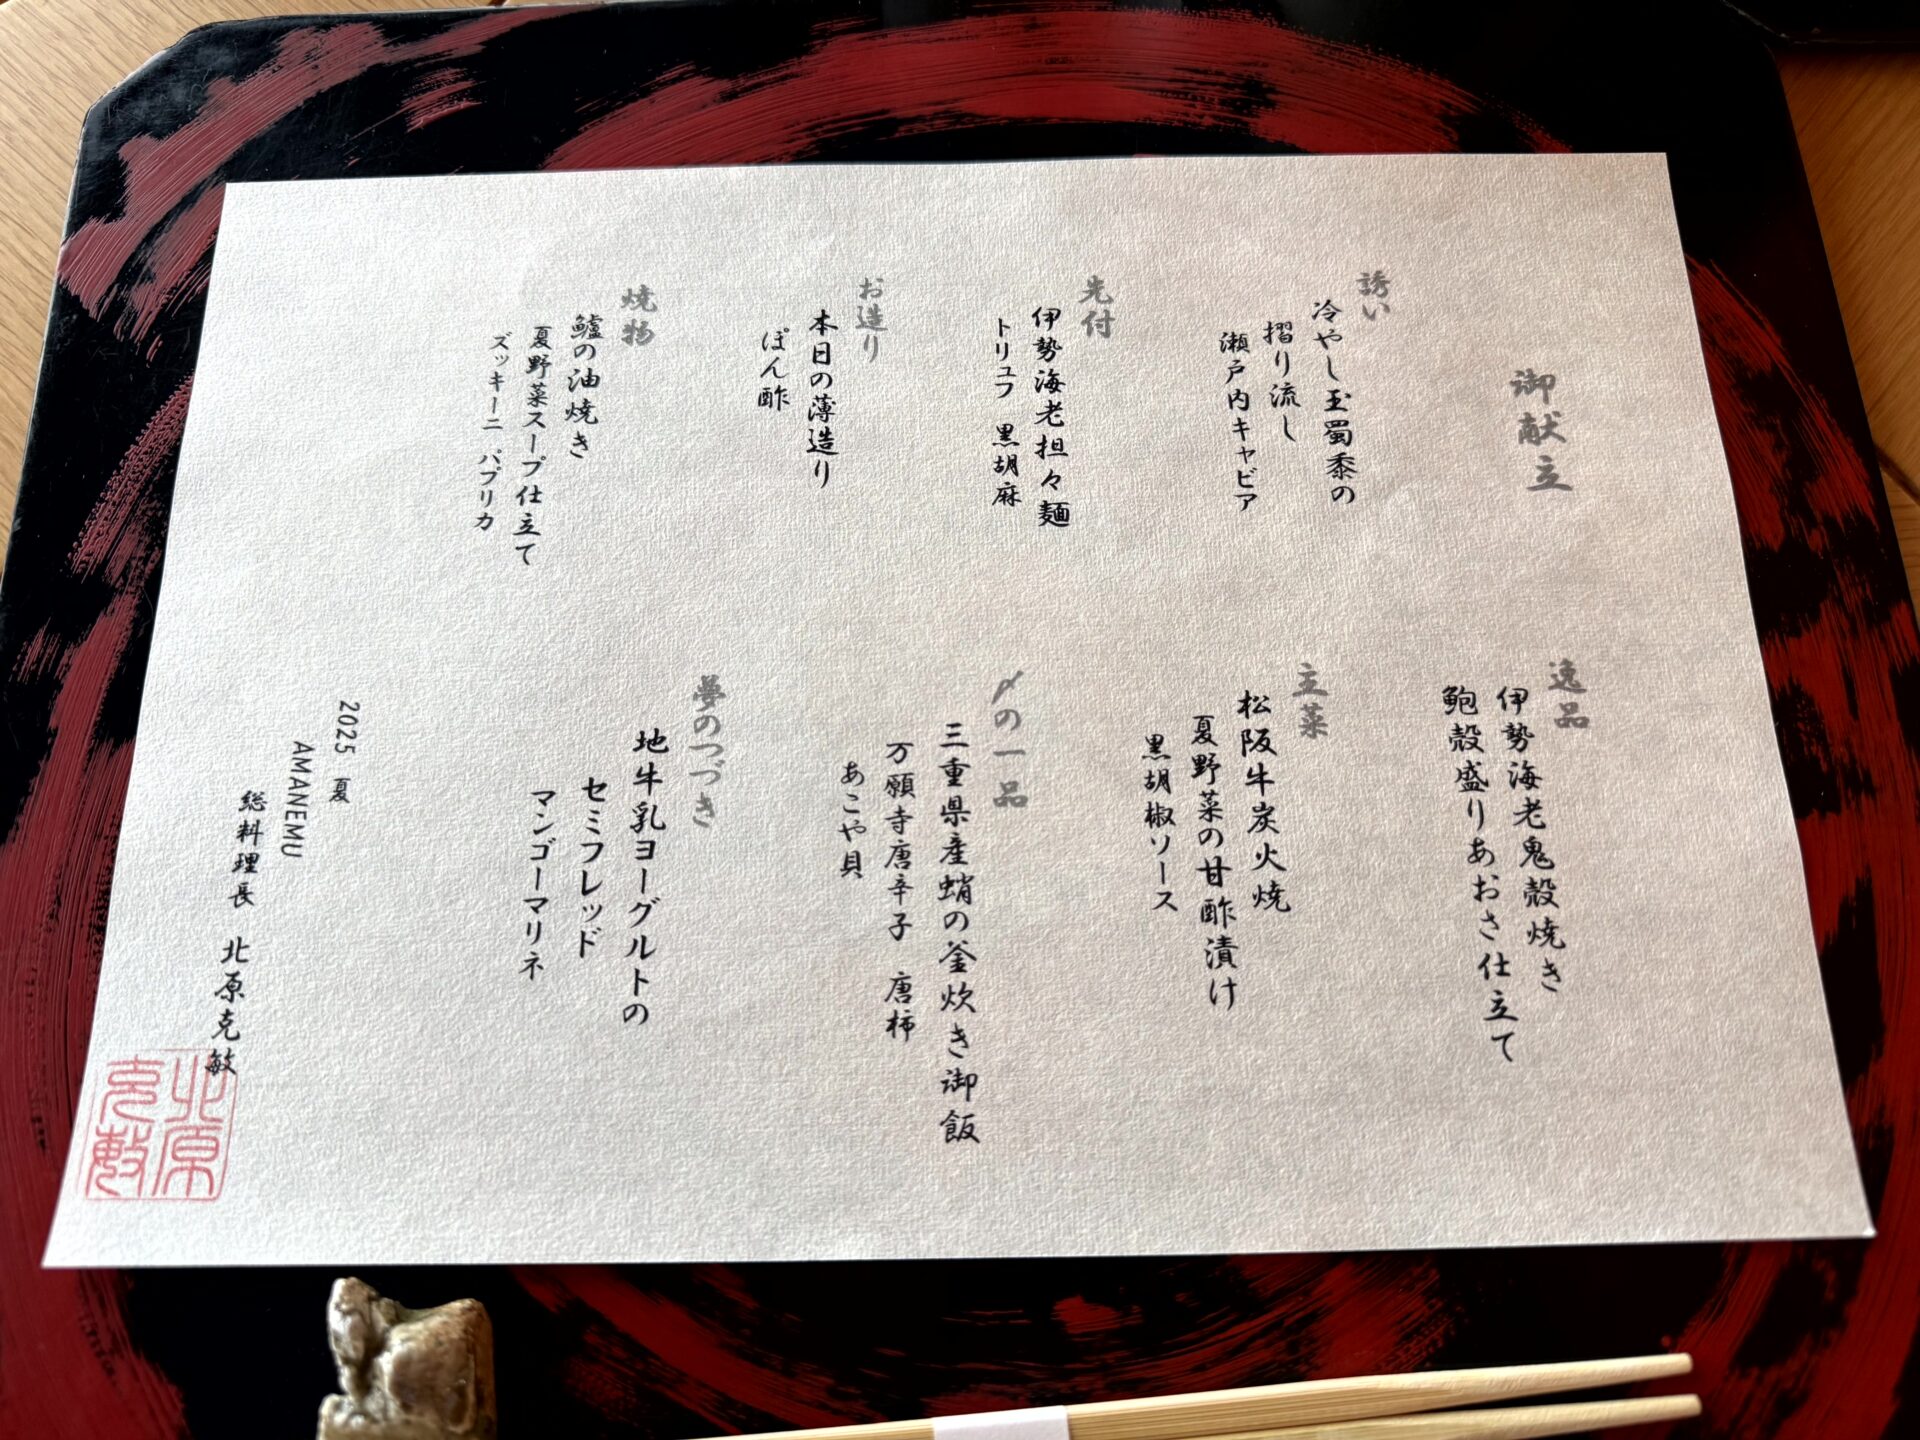 御献立
誘い
冷やし玉蜀黍の
摺り流し
瀬戸内キャビア
先付
伊勢海老担々麺
トリュフ 黒胡麻
お造り
本日の薄造り
ぽん酢
焼物
鱸の油焼き
夏野菜スープ仕立て
ズッキーニ パプリカ
逸品
伊勢海老鬼殻焼き
鮑殻盛りあおさ仕立て
主菜
松阪牛炭火焼
夏野菜の甘酢漬け
黒胡椒ソース
〆の一品
三重県産蛸の釜炊き御飯
万願寺唐辛子 唐柿
あこや貝
夢のつづき
地牛乳ヨーグルトの
セミフレッド
マンゴーマリネ
2025 夏
AMANEMU
総料理長 北原克敏
北原
克敏